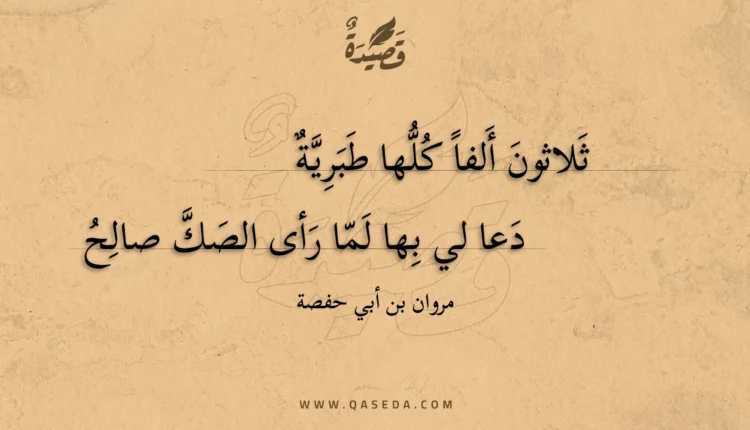 قَصِيْدَةٌ
ثَلاثونَ أَلفاً كُلُّها طَبَرِيَّةٌ
دَعا لي بِها لَمّا رَأى الصَكَّ صالِحُ
مروان بن أبي حفصة
WWW.QASEDA.COM